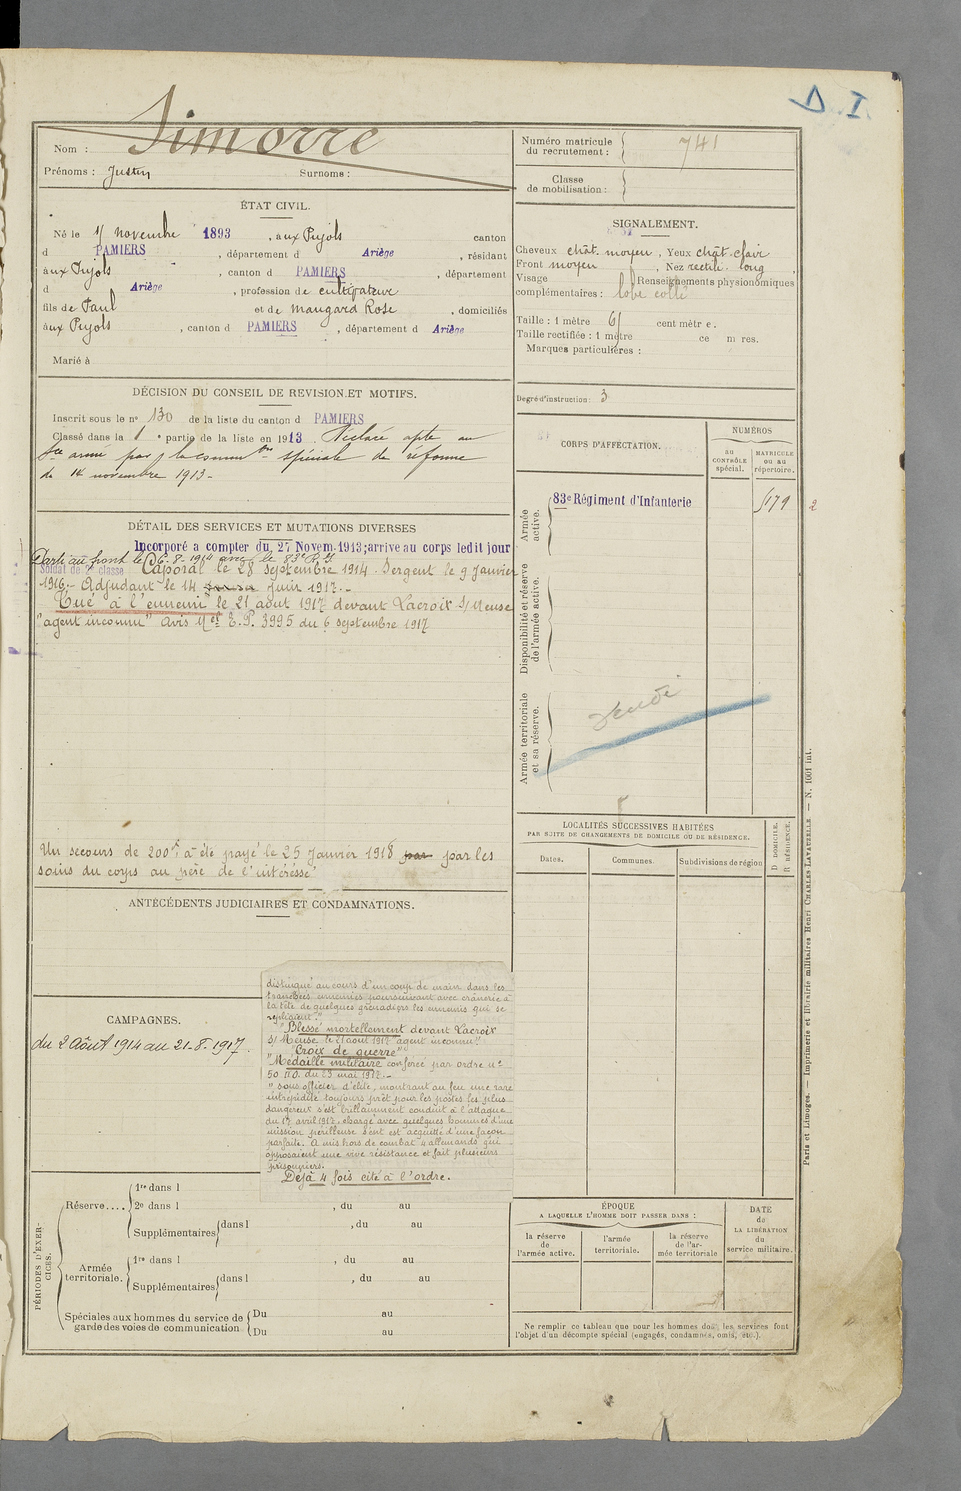 I. D
Simorre
Nom :
Prénoms : Justin Surnome :
Numéro matricule du recrutement : 741
Classe de mobilisation :
ÉTAT CIVIL.
Né le novembre 1893, aux Pujols canton
d PAMIERS, département d Ariège, résidant
aux Pujols, canton d PAMIERS, département
d Ariège, profession de cultivateur
fils de Paul et de Maugard Rose, domiciliés
aux Pujols, canton d PAMIERS, département d Ariège
Marié à
SIGNALEMENT.
Cheveux chât. moyen, Yeux chât. clair
Front moyen, Nez rectil. long,
Visage Renseignements physionomiques
complémentaires : lobe collé
Taille : 1 mètre 61 centimètres.
Taille rectifiée : 1 mètre centimètres.
Marques particulières :
Degré d'instruction : 3
DÉCISION DU CONSEIL DE REVISION ET MOTIFS.
Inscrit sous le n° 130 de la liste du canton d PAMIERS
Classé dans la 1e partie de la liste en 1913. Déclaré apte au
sce armé par la comm on spéciale de réforme
du 14 novembre 1913.
DÉTAIL DES SERVICES ET MUTATIONS DIVERSES
Incorporé a compter du 27 Novem. 1913; arrive au corps ledit jour
Parti au front le 6.8.1914 avec le 83e R.I.
Soldat de 2e classe Caporal le 28 septembre 1914. Sergent le 9 Janvier
1916.- Adjudant le 14 Juin 1917.-
Tué à l'ennemi le 21 août 1917 devant Lacroix S/Meuse
"agent inconnu" Avis Mel E.P. 3995 du 6 septembre 1917
Un secours de 200f a été payé le 25 Janvier 1918 par par les
soins du corps au père de l'intéressé
CORPS D'AFFECTATION.
NUMÉROS
au CONTRÔLE spécial.
MATRICULE ou au répertoire.
Armée active.
83e Régiment d'Infanterie
2
Disponibilité et réserve de l'armée active.
Armée territoriale et sa réserve.
LOCALITÉS SUCCESSIVES HABITÉES
PAR SUITE DE CHANGEMENTS DE DOMICILE OU DE RÉSIDENCE.
Dates. Communes. Subdivisions de région
D DOMICILE.
R RÉSIDENCE.
ANTÉCÉDENTS JUDICIAIRES ET CONDAMNATIONS.
CAMPAGNES.
du 2 Août 1914 au 21-8-1917.
distingué au cours d'un coup de main dans les
tranchées ennemies poursuivant avec crânerie à
la tête de quelques grenadiers les ennemis qui se
repliaient."
"Blessé mortellement devant Lacroix
S/ Meuse le 21 août 1917 agent inconnu"
"Croix de guerre"
"Médaille militaire conférée par ordre n°
50 du 23 mai 1917.-
"Sous officier d'élite, montrant au feu une rare
intrépidité toujours prêt pour les postes les plus
dangereux s'est brillamment conduit à l'attaque
du 17 avril 1917. chargé avec quelques hommes d'une
mission périlleuse s'en est acquitté d'une façon
parfaite. A mis hors de combat 4 allemands qui
opposaient une vive résistance et fait plusieurs
prisonniers.
Déjà 4 fois cité à l'ordre.
PÉRIODES D'EXERCICES.
Réserve....
1re dans l
2e dans l , du au
Supplémentaires dans l , du au
Armée territoriale.
1re dans l , du au
Supplémentaires dans l , du au
Spéciales aux hommes du service de
garde des voies de communication
Du au
Du au
ÉPOQUE
A LAQUELLE L'HOMME DOIT PASSER DANS :
la réserve de l'armée active.
l'armée territoriale.
la réserve de l'armée territoriale
DATE de LA LIBÉRATION du service militaire.
Ne remplir ce tableau que pour les hommes dont les services font
l'objet d'un décompte spécial (engagés, condamnés, omis, etc.).
Paris et Limoges. — Imprimerie et librairie militaires Henri CHARLES-LAVAUZELLE. — N. 1001 int.